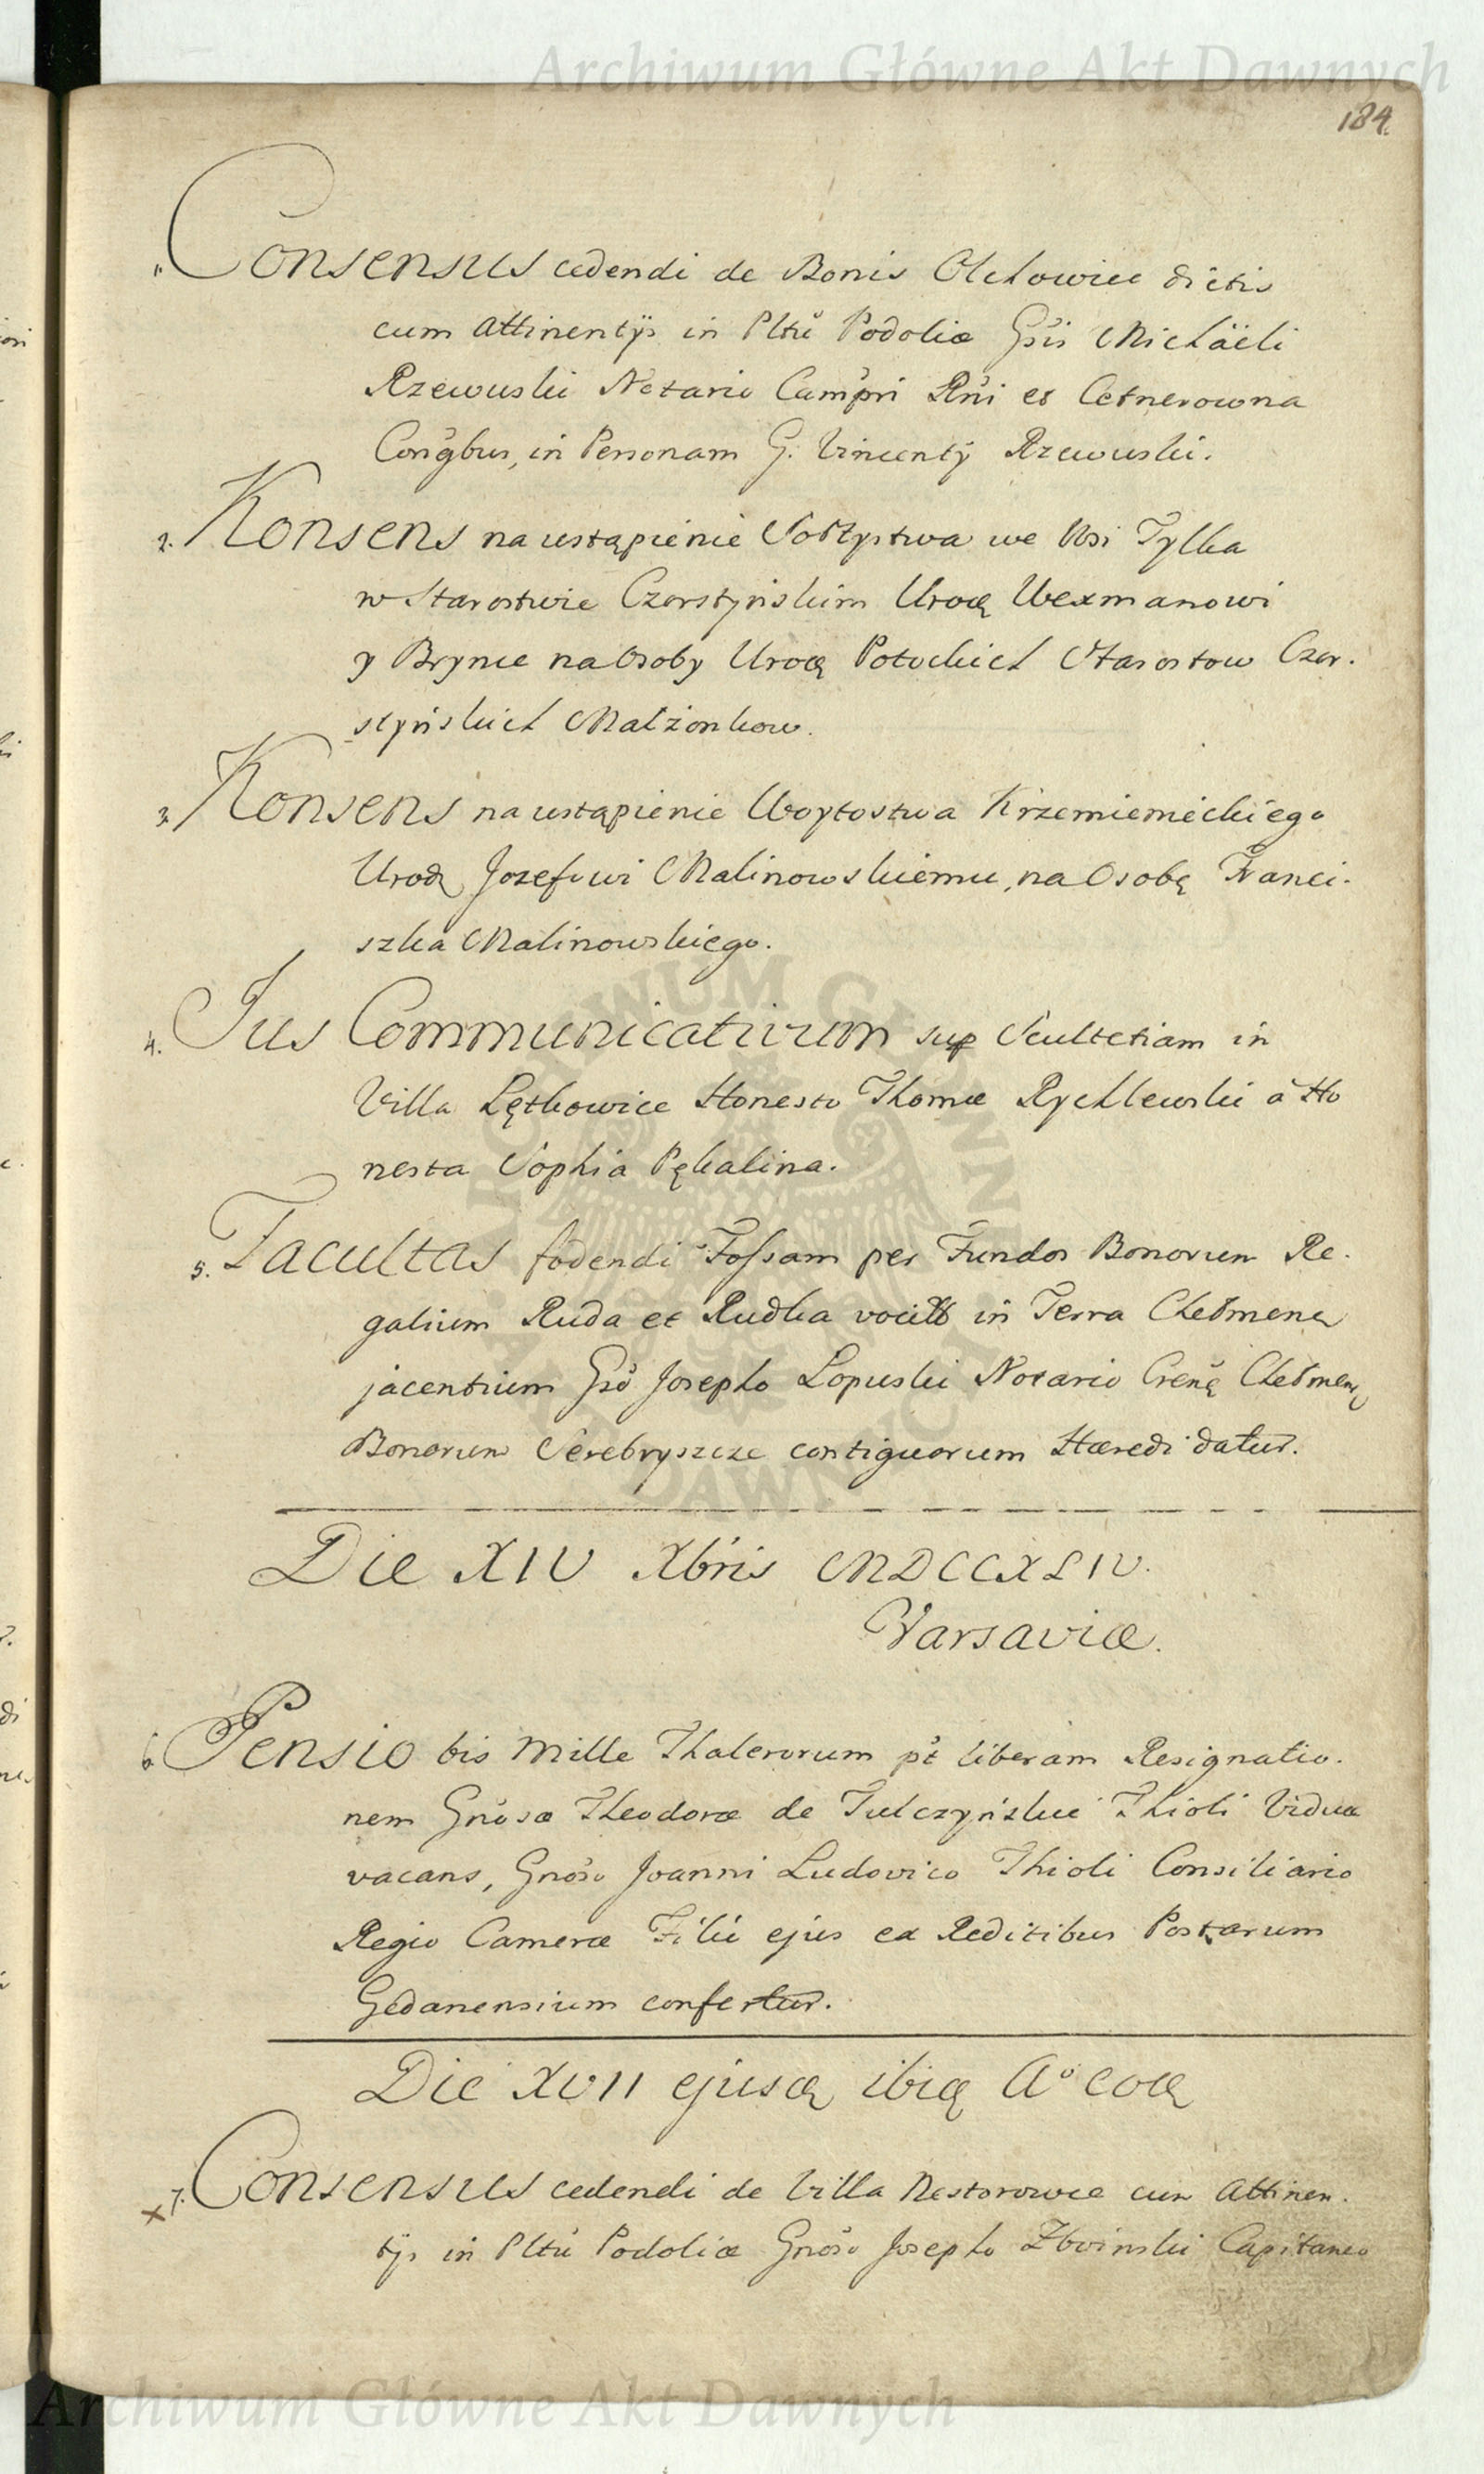 Archiwum Główne Akt Dawnych
184.
1. Consensus cedendi de Bonis Olchowiec dictis
cum Attinentijs in Pltũ Podoliæ Gsis Michaëli
Rzewuski Notario Campri Rni et Cetnerowna
Congbus, in Personam G. Vincentÿ Rzewuski.
2. Konsens na ustąpienie Sołtystwa we Wsi Tylka
w Starostwie Czorstyńskim Urodz Wexmanowi
y Brynce na Osoby Urodz Potockich Starostow Czor-
styńskich Małżonkow.
3. Konsens na ustąpienie Woytostwa Krzemienieckiego
Urodz Jozefowi Malinowskiemu, na Osobę Franci-
szka Malinowskiego.
4. Jus Communicativum sup Scultetiam in
Villa Lętkowice Honesto Thomæ Rychlewski à Ho
nesta Sophia Pękalina.
5. Facultas fodendi Fossam per Fundos Bonorum Re-
galium Ruda et Rudka vocit in Terra Chełmen
jacentium Gso Josepho Łopuski Notario Cren Chełmen
Bonorum Serebryszcze contiguorum Hæredi datur.
Die XIV Xbris MDCCXLIV.
Varsaviæ.
6. Pensio bis Mille Thalerorum pt liberam Resignatio-
nem Gnosæ Theodoræ de Tulczyńskie Thioli Viduæ
vacans, Gnoso Joanni Ludovico Thioli Consiliario
Regio Cameræ Filio ejus ex Reditibus Postarum
Gedanensium confertur.
Die XVII ejusdę ibidę Aº eodę
x 7. Consensus cedendi de Villa Nestorowce cum Attinen-
tijs in Pltũ Podoliæ Gnoso Josepho Zboinski Capitaneo
Archiwum Główne Akt Dawnych